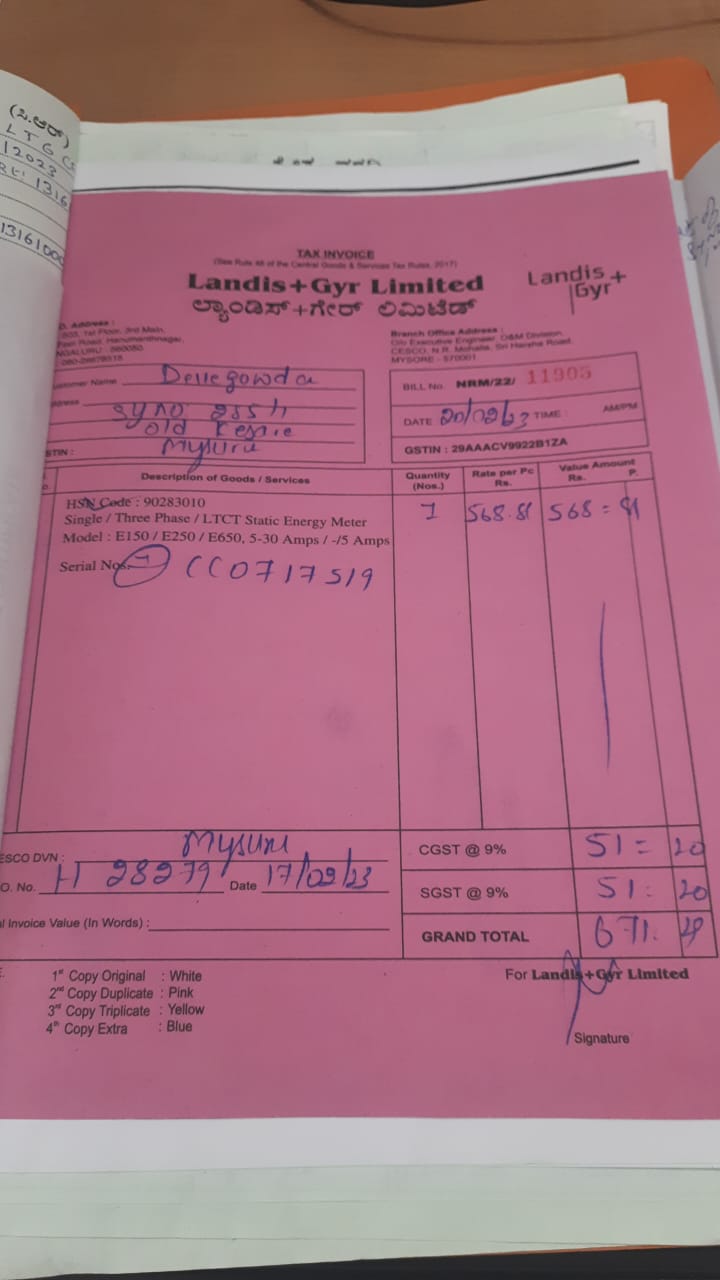 (ಸಿ.ಆರ್)
LTG
12023
1316
1316100
TAX INVOICE
(See Rule 48 of the Central Goods & Services Tax Rules, 2017)
Landis+Gyr Limited
ಲ್ಯಾಂಡಿಸ್+ಗೇರ್ ಲಿಮಿಟೆಡ್
Landis+
Gyr
Address :
1st Floor, 3rd Main,
Road, Hanumanthnagar,
Branch Office Address :
O/o Executive Engineer, O&M Division,
CESCO, N.R. Mohalla, Sri Harsha Road,
MYSORE - 570001
ustomer Name
BILL No. NRM/22/ 11905
old
Mysuru
DATE 20/02/23 TIME : AM/PM
STIN :
GSTIN : 29AAACV9922B1ZA
Description of Goods / Services
Quantity (Nos.)
Rate per Pc Rs.
Value Amount Rs. P.
HSN Code : 90283010
Single / Three Phase / LTCT Static Energy Meter
1 568.81 568 = 81
Model : E150 / E250 / E650, 5-30 Amps / -/5 Amps
Serial Nos. 1 CC0717519
ESCO DVN : Mysuru
CGST @ 9% 51 = 20
O. No. H 28279 Date 17/02/23
SGST @ 9% 51 : 20
l Invoice Value (In Words) :
GRAND TOTAL 671.
1st Copy Original : White
2nd Copy Duplicate : Pink
3rd Copy Triplicate : Yellow
4th Copy Extra : Blue
For Landis+Gyr Limited
Signature